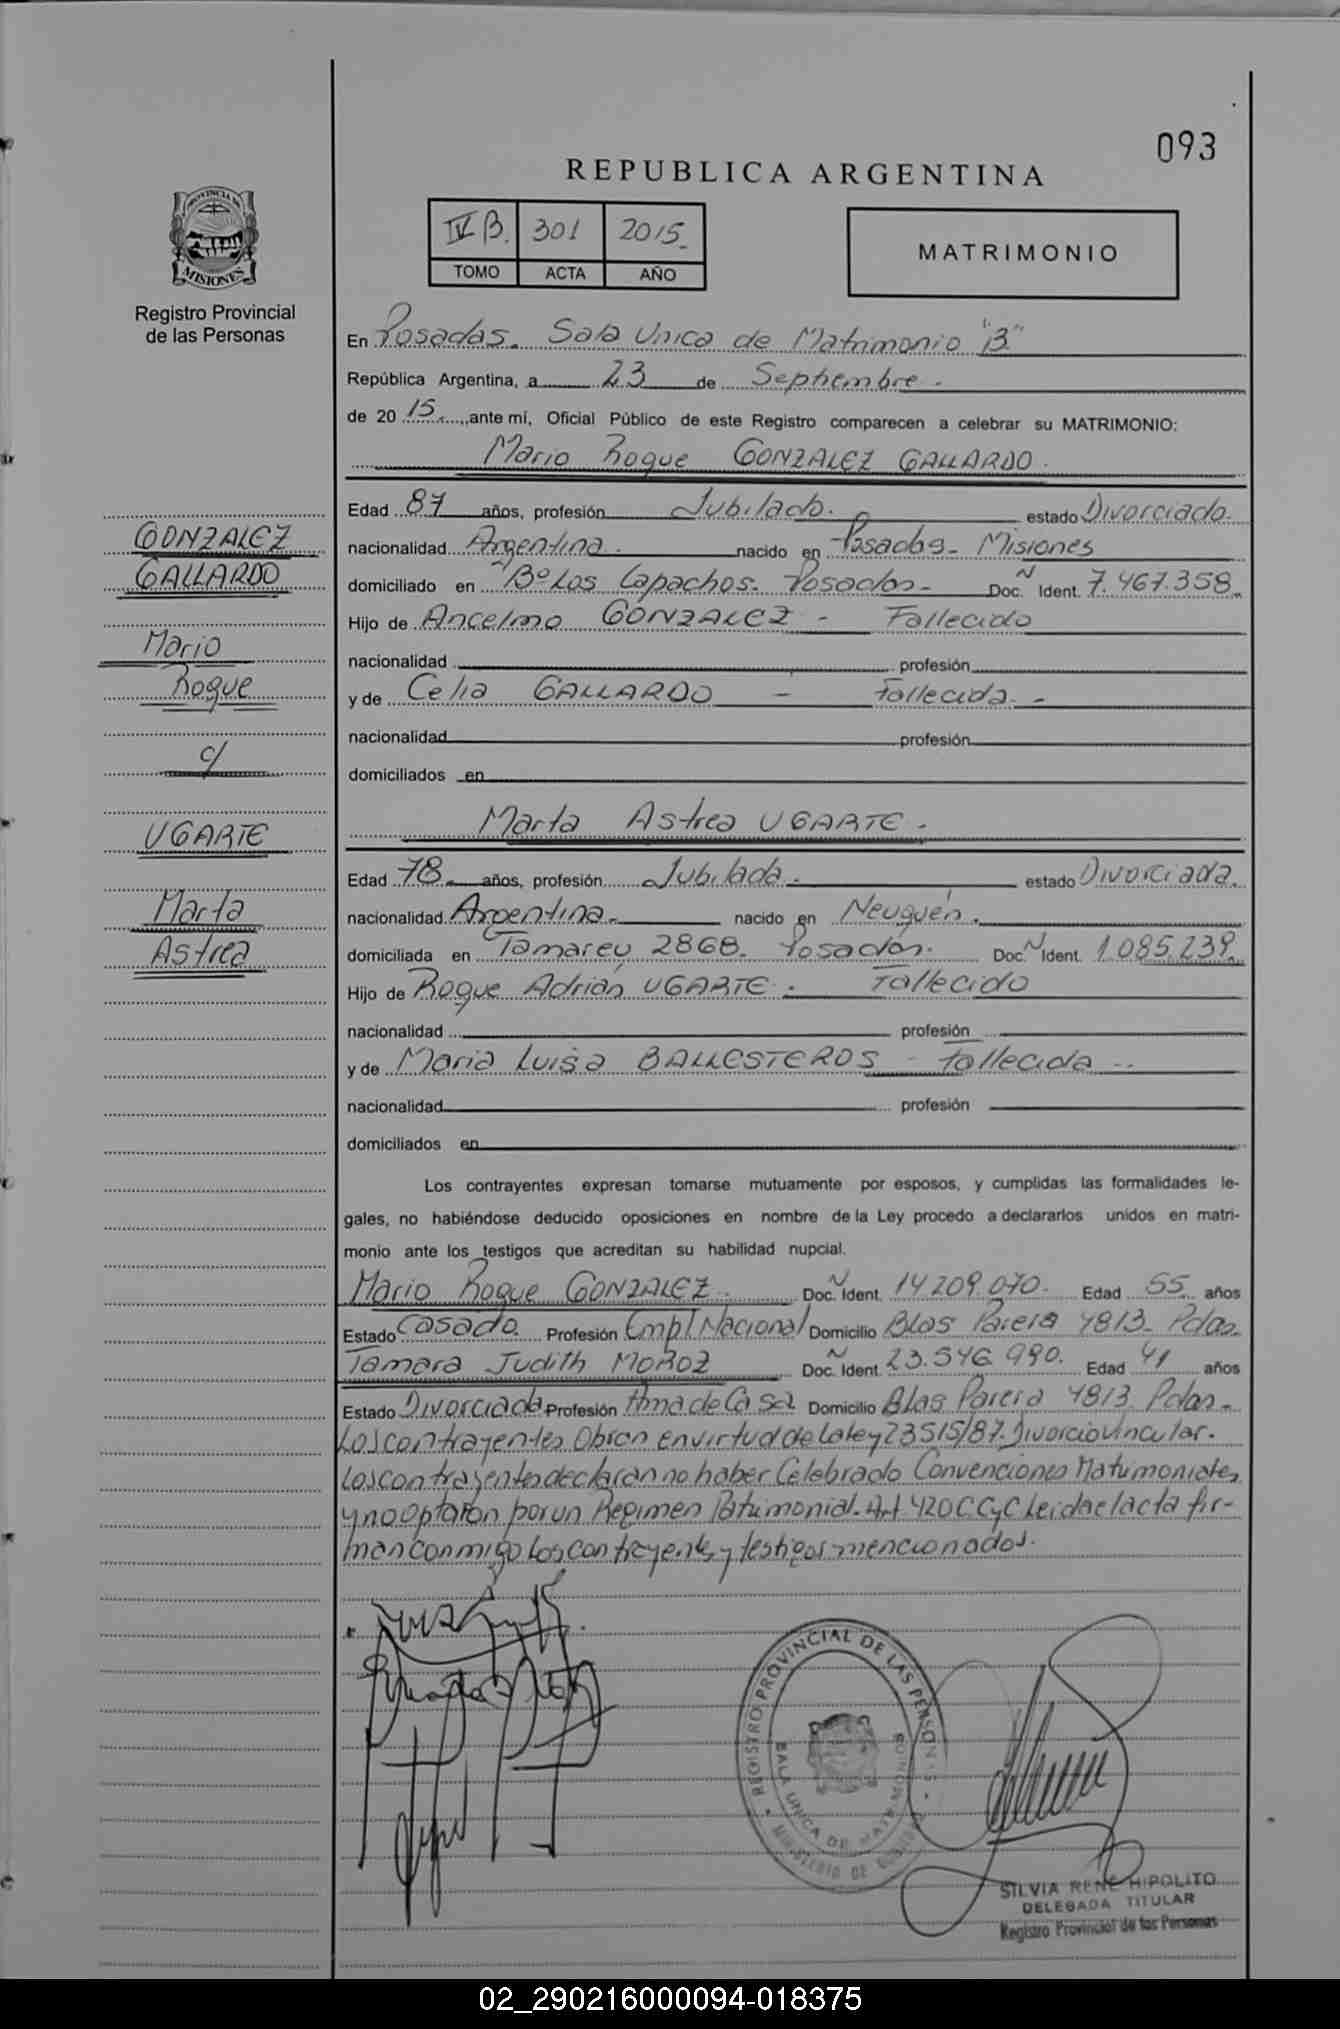 093
REPUBLICA ARGENTINA
IV B. 301 2015.
TOMO ACTA AÑO
MATRIMONIO
PROVINCIA DE
MISIONES
Registro Provincial
de las Personas
En Posadas. Sala Unica de Matrimonio "B"
República Argentina, a 23 de Septiembre.
de 20 15. ante mí, Oficial Público de este Registro comparecen a celebrar su MATRIMONIO:
Mario Roque GONZALEZ GALLARDO.
Edad 87 años, profesión Jubilado. estado Divorciado.
nacionalidad Argentina. nacido en Posadas- Misiones
domiciliado en Bº Los Lapachos. Posadas- Doc. N Ident. 7.467.358.
Hijo de Ancelmo GONZALEZ - Fallecido
nacionalidad profesión
y de Celia GALLARDO - Fallecida. -
nacionalidad profesión
domiciliados en
GONZALEZ
GALLARDO
Mario
Roque
c/
UGARTE
Marta
Astrea
Marta Astrea UGARTE.
Edad 78. años, profesión Jubilada. estado Divorciada.
nacionalidad Argentina. nacido en Neuquén.
domiciliada en Tamareu 2868. Posadas. Doc. N Ident. 1.085.239.
Hijo de Roque Adrián UGARTE. Fallecido
nacionalidad profesión
y de Maria Luisa BALLESTEROS - Fallecida -
nacionalidad profesión
domiciliados en
Los contrayentes expresan tomarse mutuamente por esposos, y cumplidas las formalidades le-
gales, no habiéndose deducido oposiciones en nombre de la Ley procedo a declararlos unidos en matri-
monio ante los testigos que acreditan su habilidad nupcial.
Mario Roque GONZALEZ. Doc. N Ident. 14.209.070. Edad 55 años
Estado Casado. Profesión Empl Nacional Domicilio Blas Parera 4813- Pdas.
Tamara Judith MOROZ Doc. N Ident. 23.546.990. Edad 41 años
Estado Divorciada Profesión Ama de Casa Domicilio Blas Parera 4813 Pdas.
Los contrayentes Obran en virtud de la ley 23515/87. Divorcio Vincular.
Los contrayentes declaran no haber Celebrado Convenciones Matrimoniales,
y no optaron por un Regimen Patrimonial. Art 420 C CyC Leida el acta fir-
man conmigo Los contrayentes y testigos mencionados.
REGISTRO PROVINCIAL DE LAS PERSONAS
SALA UNICA DE MATRIMONIOS
MINISTERIO DE GOBIERNO
SILVIA RENE HIPOLITO
DELEGADA TITULAR
Registro Provincial de las Personas
02_290216000094-018375